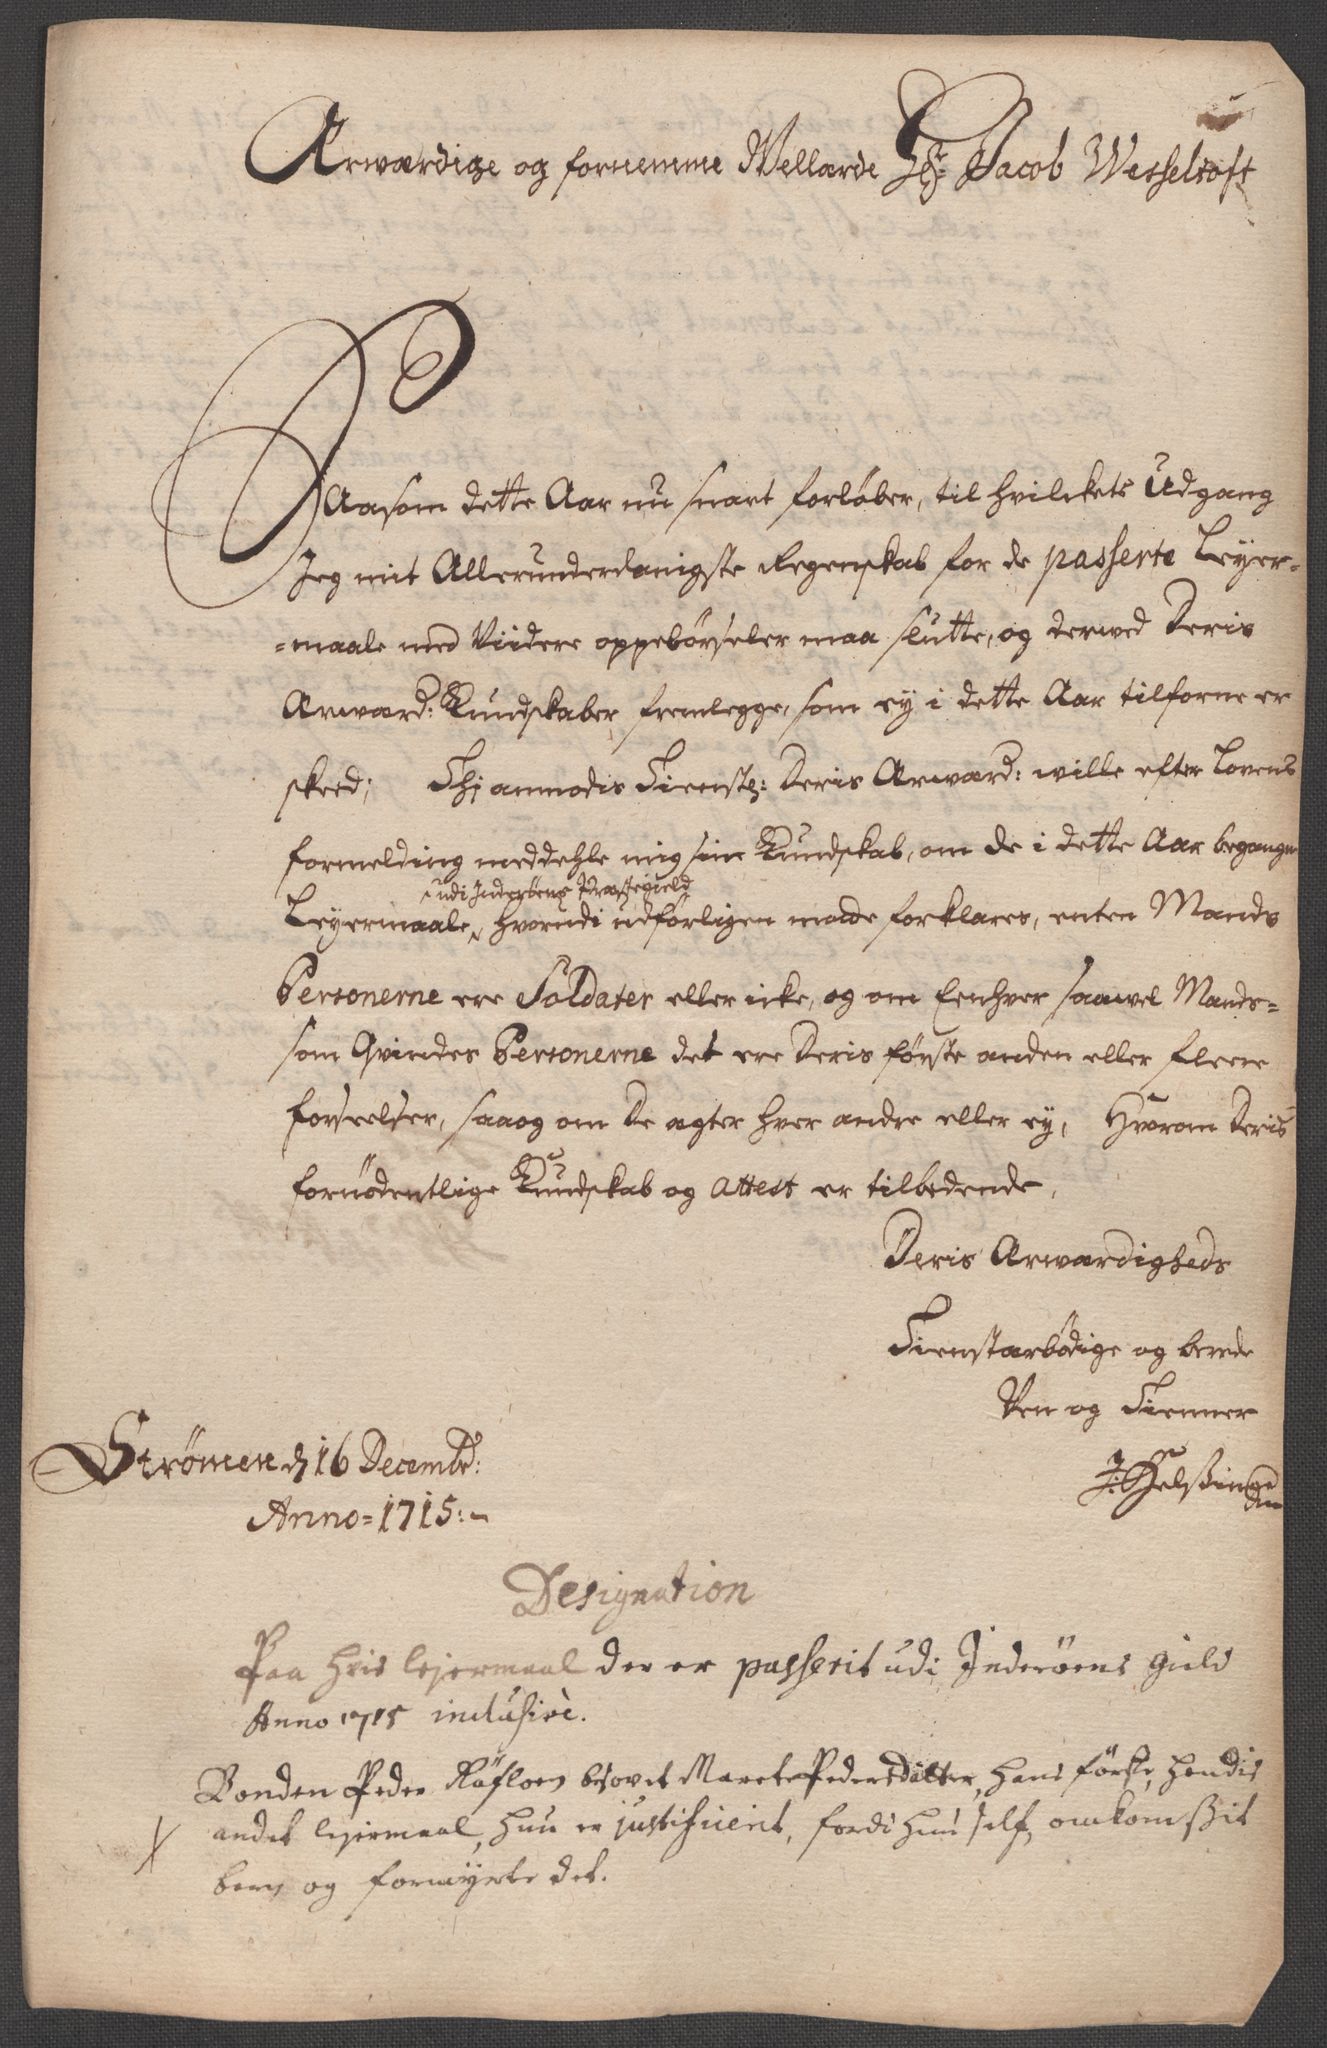 Ærwærdige og fornemme Wellærde Hr: Jacob Wesseltoft
Saasom dette Aar nu snart forløber, til hvilckets Udgang
Jeg mit Allerunderdanigste Regenskab for de passerte Leyer-
-maale med Viidere oppebørseler maa slutte, og derwed Deris
Ærwærd: Kundskaber fremlegge, som ey i dette Aar tilforne er
skeed; Thj anmodis Tienstl: Deris Ærwærd: wille efter Lovens
formelding meddehle mig sin Kundskab, om de i dette Aar begangne
udi Inderøens Præstegield
Leyermaale, hvorudi udførligen maade forklares, enten Mands
Personerne ere Soldater eller icke, og om Eenhver saawel Mands-
som Qvindes Personerne det ere Deris første anden eller fleere
forseelser, saa og om De agter hver andre eller ey, Hvorom Deris
fornødentlige Kundskab og attest er tilbedende,
Deris Ærwærdigheds
Tienstærbødige og berede
Ven og Tienner
Strømen d 16 Decembr:
J: Helsing
Anno = 1715:
Designation
Paa hvis lejermaal der er passerit udi Inderöens gield
Anno 1715 inclusivè.
Bonden Peder besovet Marete Pedersdatter, hans förste, hendis
andet lejermaal, hun er justificerit, fordi hun self omkom sit
barn og formyrte det.